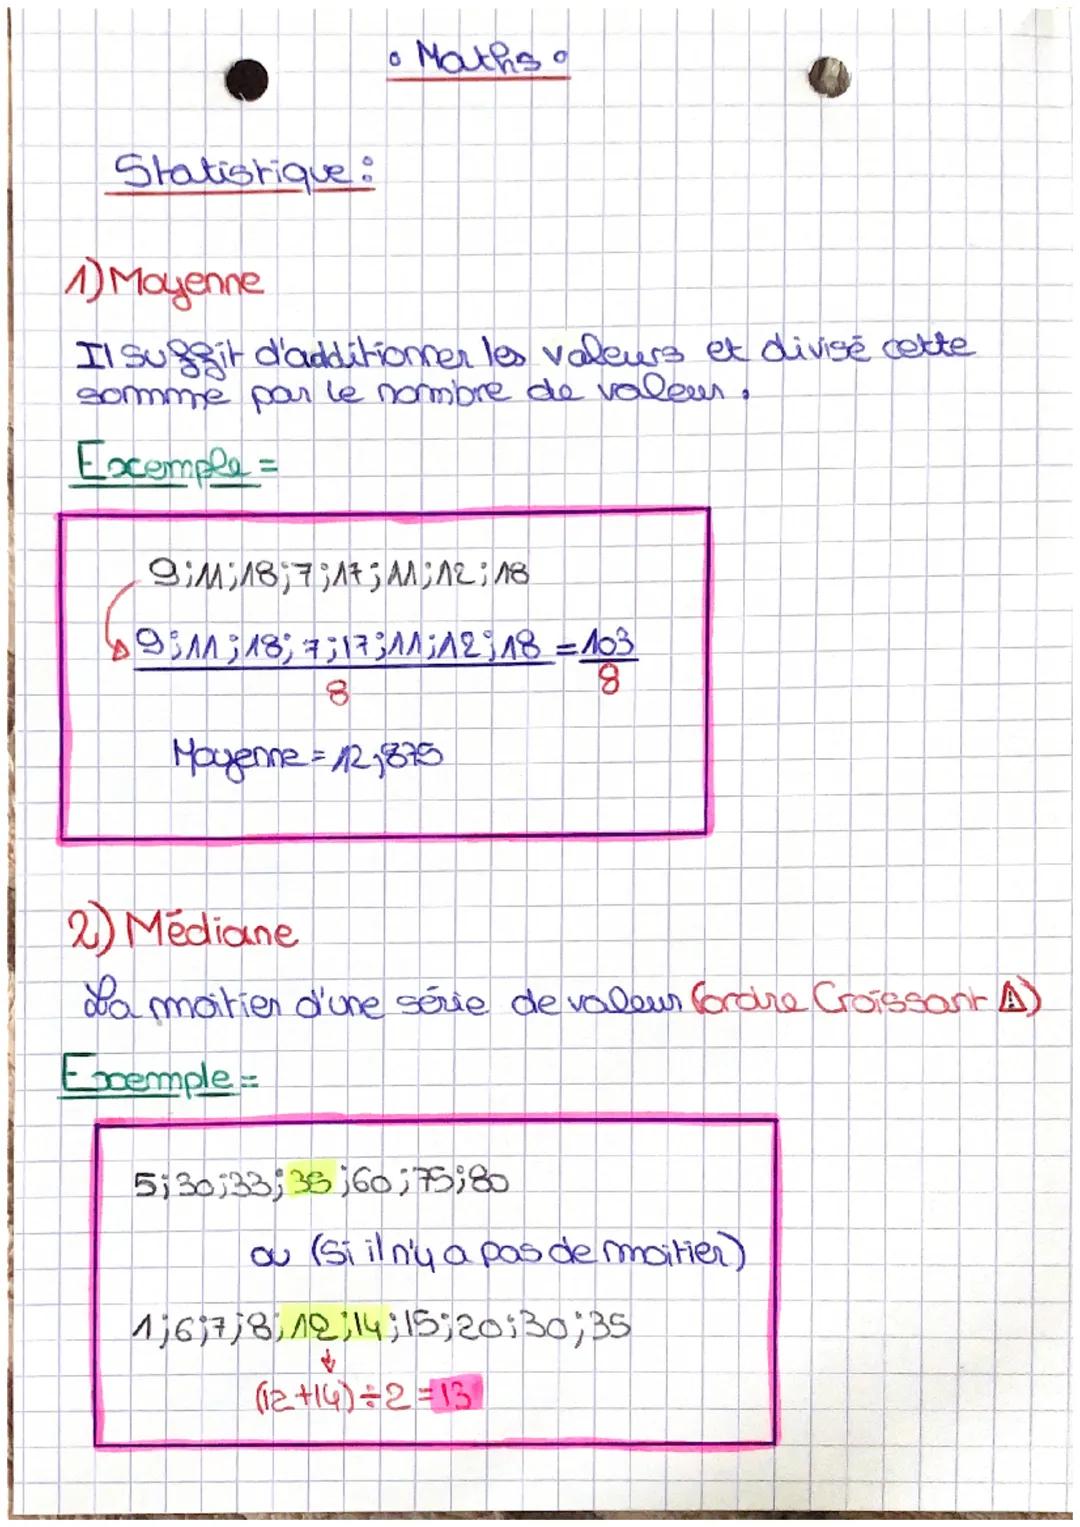 ° Maths °
Statistique :
1) Moyenne
Il suffit d'additionner les valeurs et divisé cette
somme par le nombre de valeur.
Exemple =
9;11;18;7;17;11;12;18
9;11;18;7;17;11;12;18 = 103
8 8
Moyenne = 12,875
2) Médiane
La moitier d'une série de valeur (ordre Croissant ⚠)
Exemple =
5;30;33;35;60;75;80
ou (Si il n'y a pas de moitier)
1;6;7;8;12;14;15;20;30;35
↓
(12+14)÷2=13